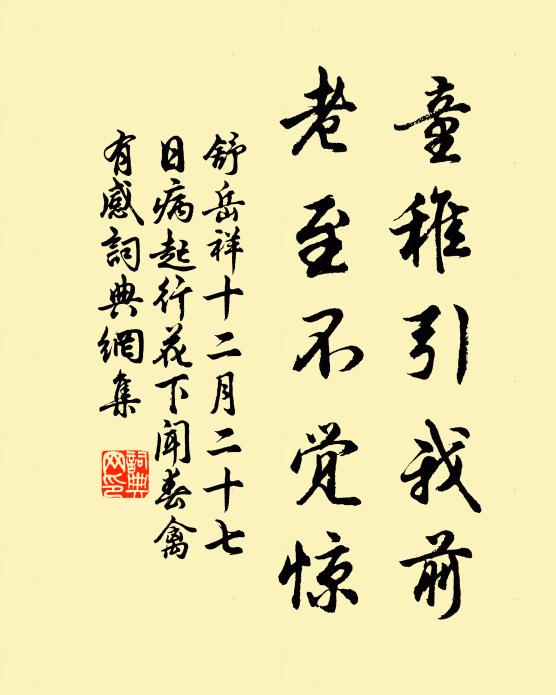 童稚引我前
老至不觉惊
舒岳祥十二月二十七
日病起行花下闻春禽
有感詞典網集
詞典
网印